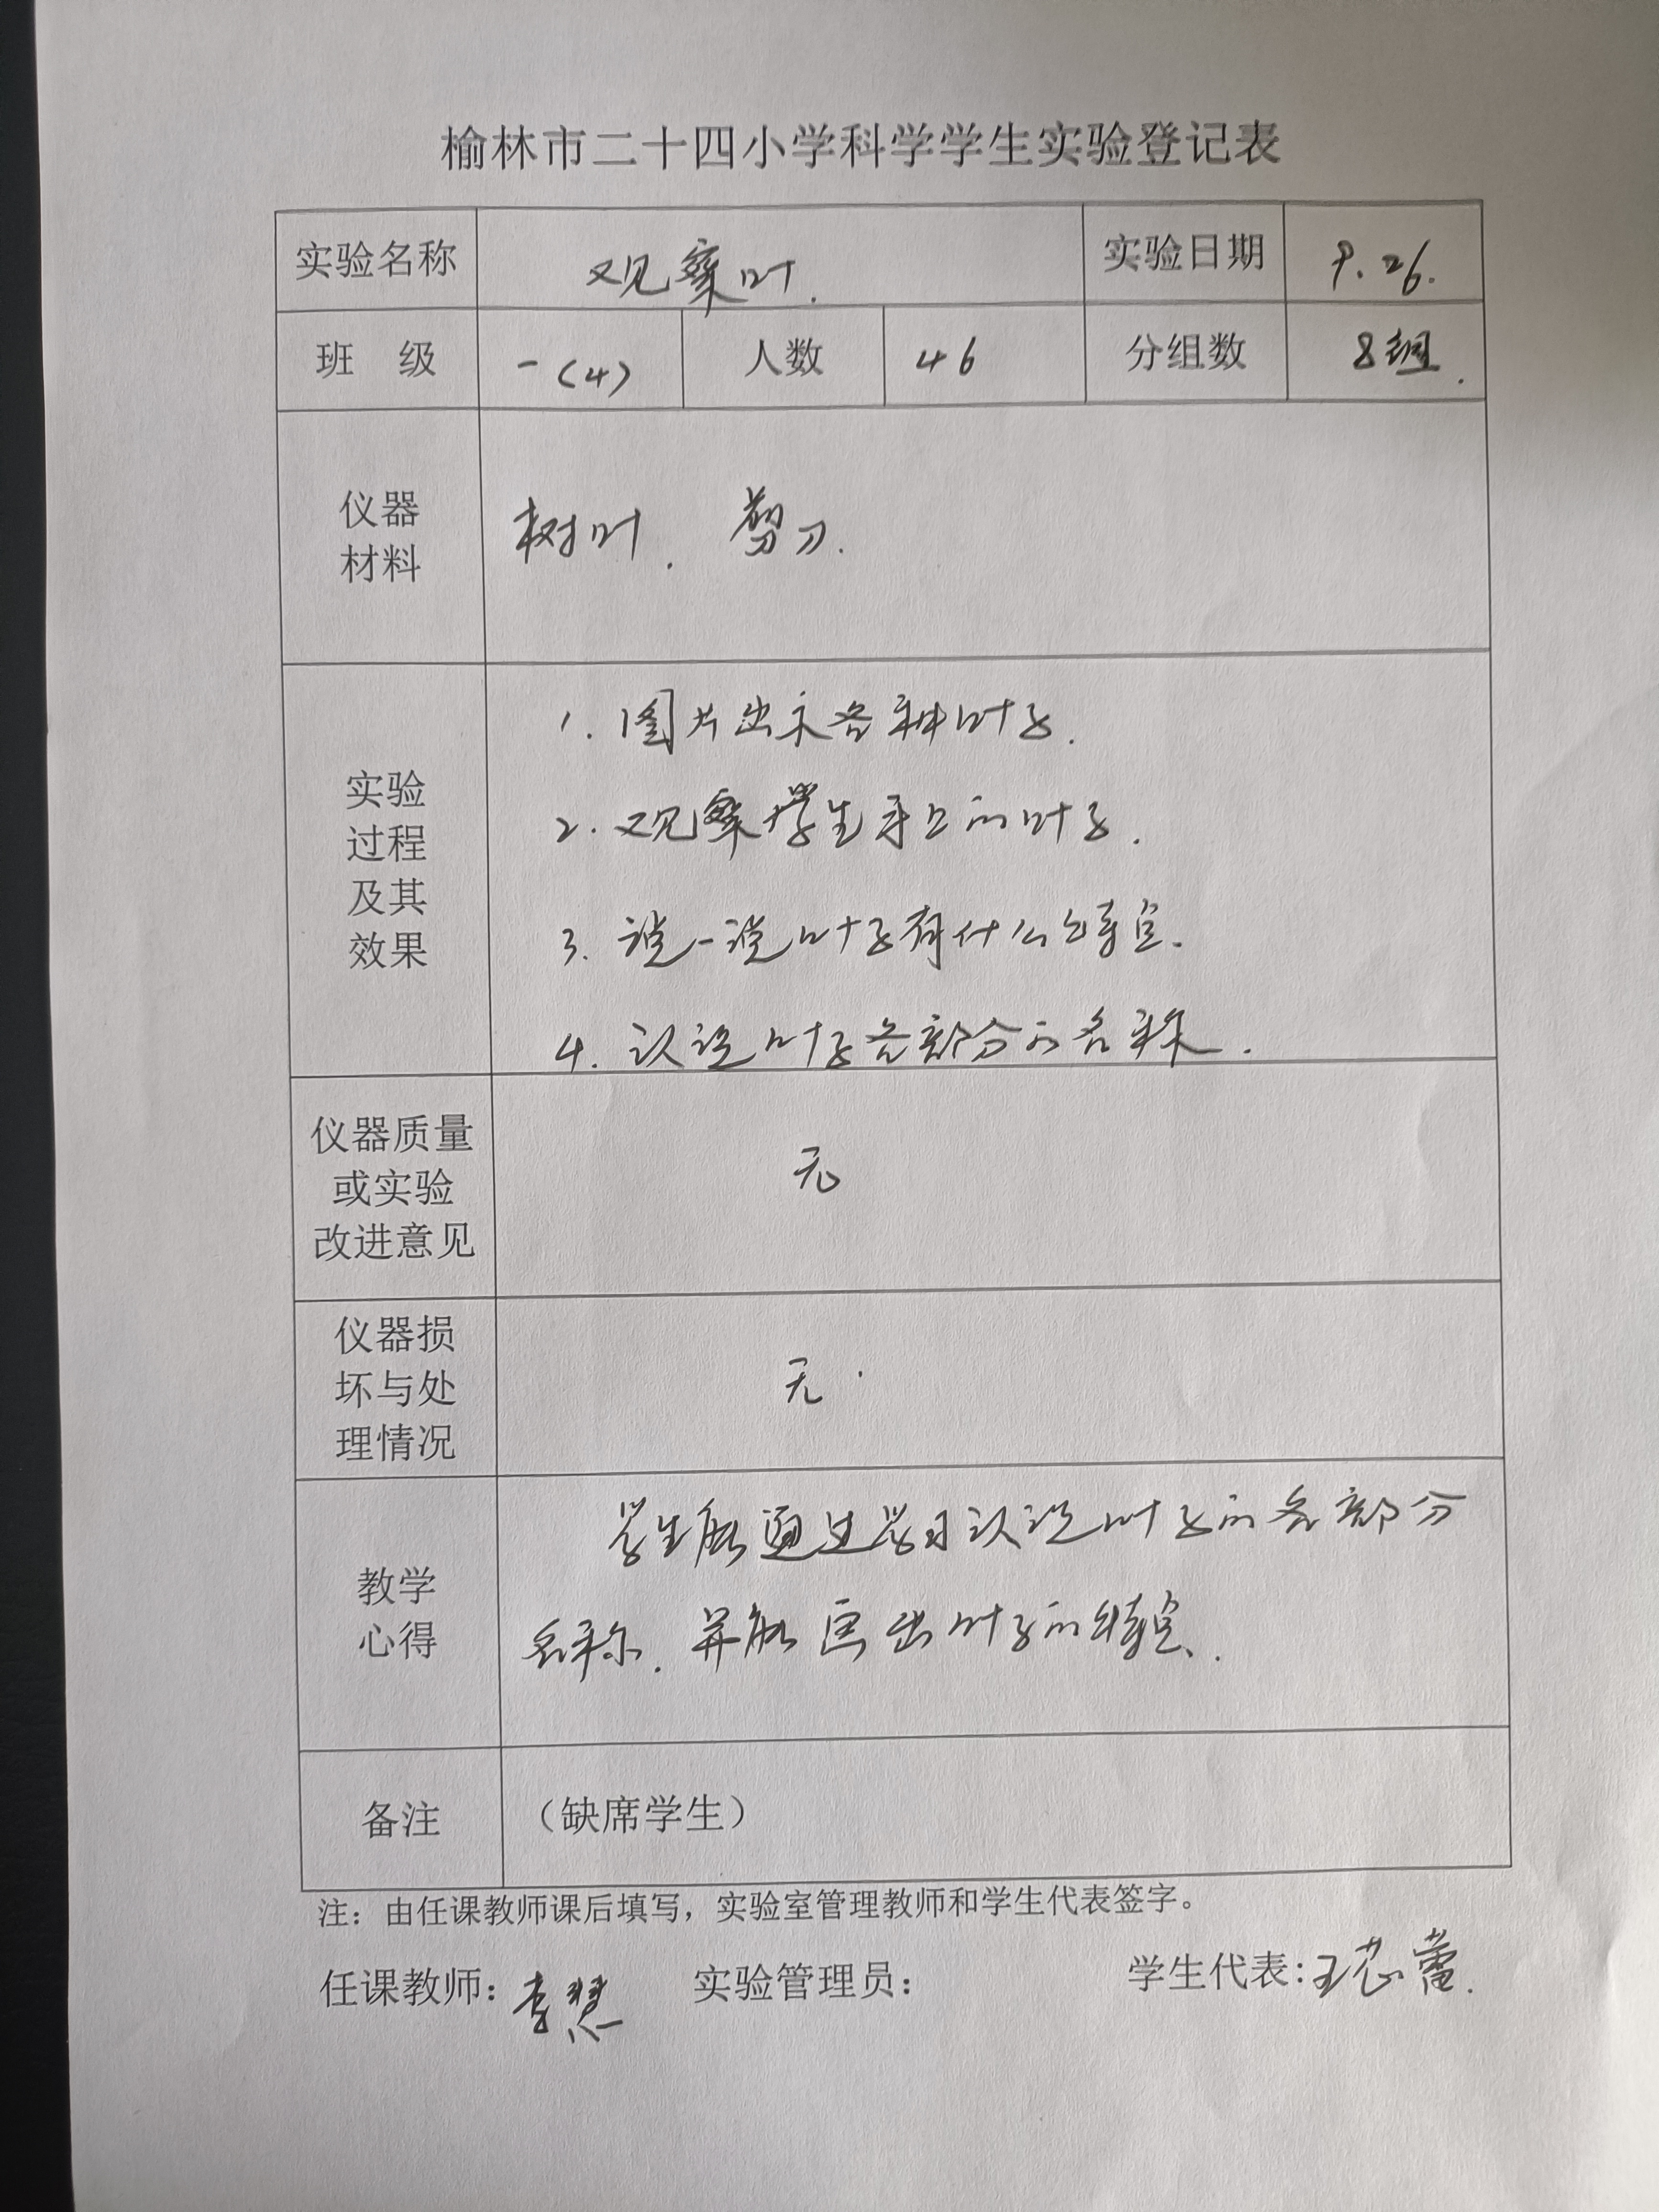 榆林市二十四小学科学学生实验登记表
实验名称 观察叶. 实验日期 9.26.
班 级 一(4) 人数 46 分组数 8组.
仪器
材料
树叶. 剪刀.
实验
过程
及其
效果
1. 图片出示各种叶子.
2. 观察学生手上的叶子.
3. 说一说叶子有什么特点.
4. 认识叶子各部分的名称.
仪器质量
或实验
改进意见
无
仪器损
坏与处
理情况
无.
教学
心得
学生能通过学习认识叶子的各部分
名称. 并能画出叶子的特点.
备注
（缺席学生）
注：由任课教师课后填写，实验室管理教师和学生代表签字。
任课教师：李慧 实验管理员： 学生代表：王芯蕾.